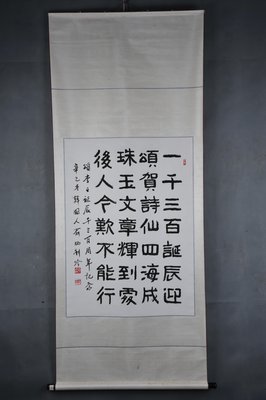 一千三百誕辰迎
頌賀詩仙四海成
珠玉文章輝到處
後人今歎不能行
李白誕辰千三百周年記念
辛巳春韓國人